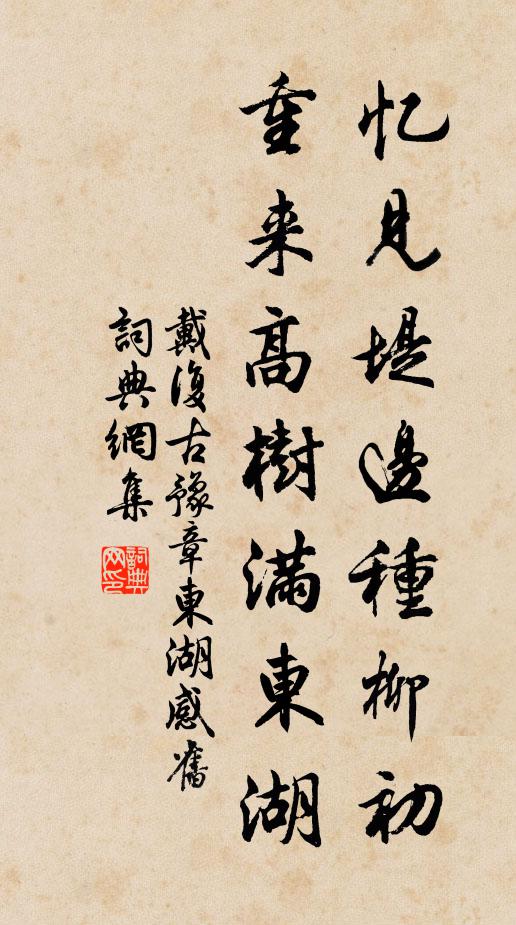 忆見堤邊種柳初
重来高樹滿東湖
戴復古豫章東湖感舊
詞典網集
詞典网印